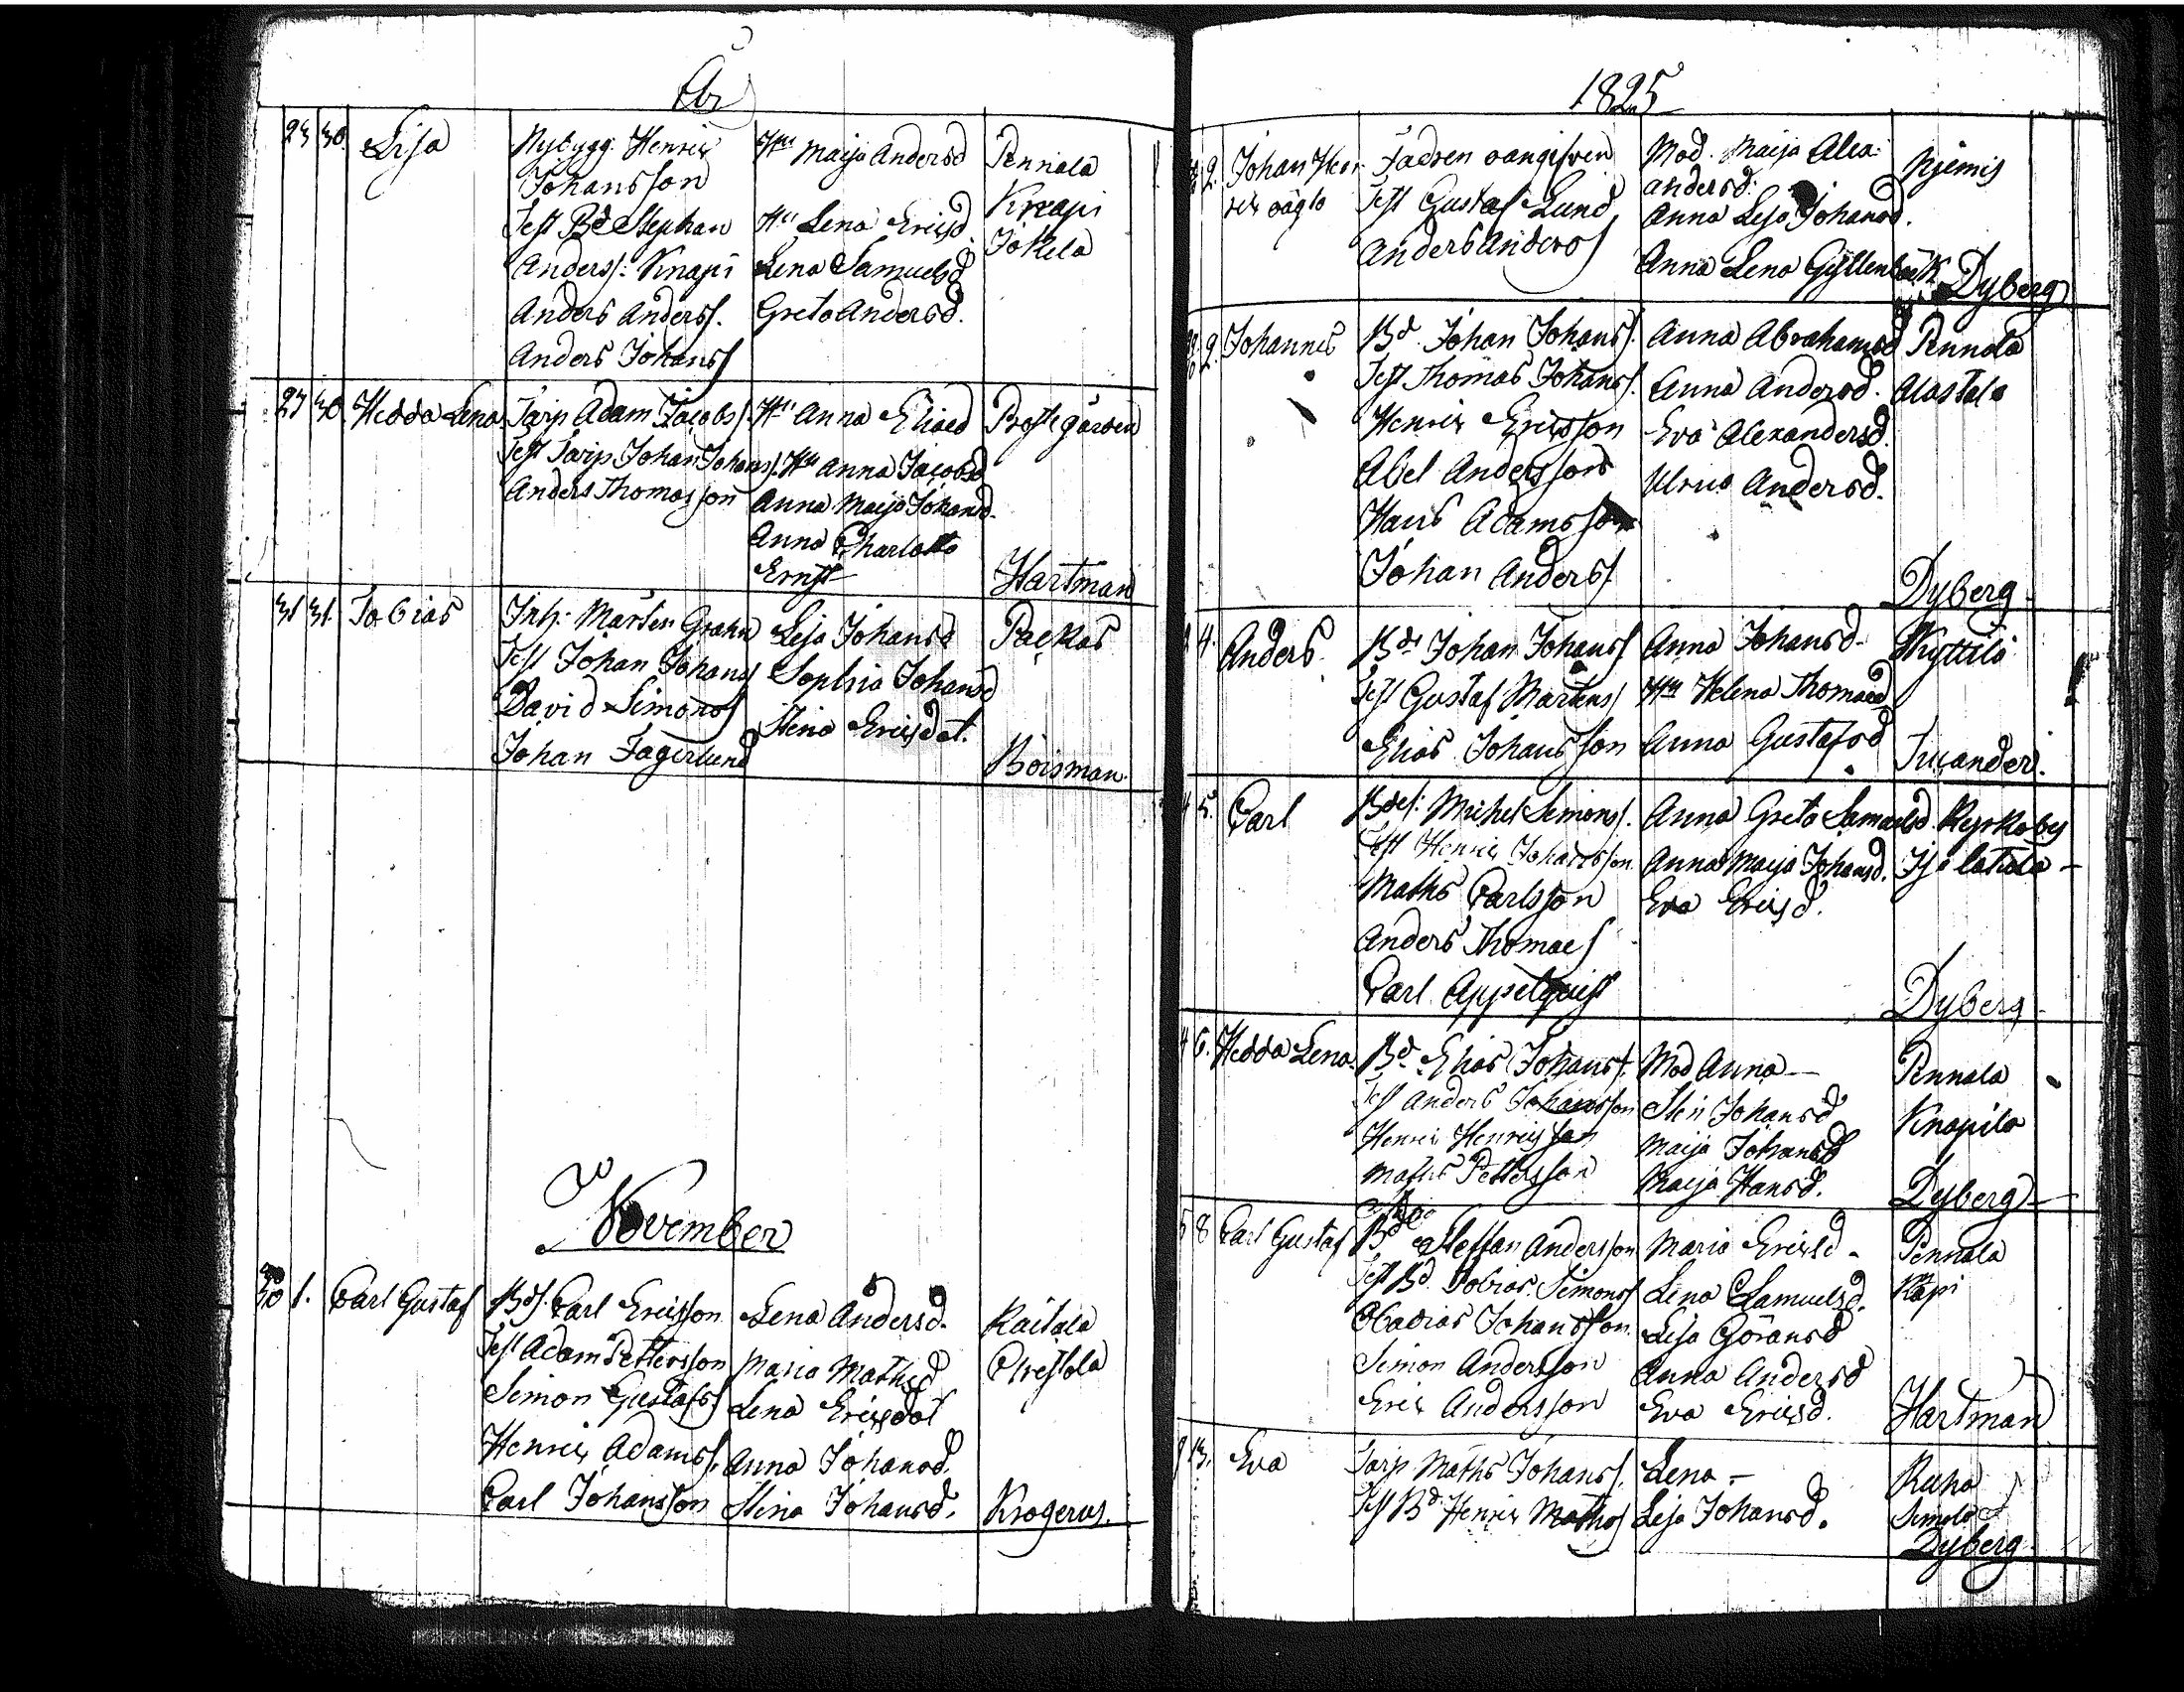 År
23 30 Lisa Nybygg. Henric Hu Maija Andersd Pennala
Johansson Knapi
Test Bd Stephan Hu Lena Ericsd Jokela
Anderss: Knapi Lena Samuelsd
Anders Anderss. Greta Andersd.
Anders Johanss
27 30. Hedda Lena Torp Adam Jacobs Hu Anna Eliaed Prostgården
Test Torp Johan Johans. Hu Anna Jacobsd
Anders Thomasson Anna Maija Johansd.
Anna Charlotta
Ernst Hartman
31 31. Tobias Inh: Mårten Grahn Lisa Johansd Packas
Test Johan Johans Sophia Johansd
David Simons Stina Ericsdot.
Johan Fagerlund Boisman
November
30 1. Carl Gustaf Bds. Carl Ericsson Lena Andersd. Raitala
Test Adam Pettersson Maria Mathsd
Simon Gustafs. Lena Ericsdot
Henric Adams. Anna Johansd.
Carl Johansson Stina Johansd. Krogerus.
1825
2. Johan Hen- Fadren oangifven Mod. Maija Alex- Njemis
ric oägta Test Gustaf Lund andersd:
Anders Anders Anna Lisa Johansd.
Anna Lena Gyllenbäck Dyberg
2. Johannes Bd. Johan Johans. Anna Abrahamsd Pennala
Test Thomas Johans. Anna Andersd. Alastalo
Henric Ericsson Eva Alexandersd.
Abel Andersson Ulrica Andersd.
Hans Adamsson
Johan Anders Dyberg
4. Anders Bd. Johan Johans Anna Johansd. Kyttilä
Test Gustaf Mårtens Hu Helena Thomaed
Elias Johansson Anna Gustafsd Incander.
4 5. Carl Bdes: Michel Simons. Anna Greta Samuelsd. Kyrkoby
Test Henric Johansson Anna Maija Johansd. Iso latala
Maths Carlsson Eva Ericsd.
Anders Thomae
Carl Appelquist Dyberg
4 6. Hedda Lena Bd. Elias Johans. Mod Anna Pennala
Test Anders Johansson Stin Johansd Knapila
Henric Henricsson Maija Johansd
Maths Pettersson Maija Hansd. Dyberg
5 8 Carl Gustaf Bd Steffan Andersson Maria Ericsd. Pennala
Test Bd. Tobias Simons Lena Samuelsd. Knapi
Obadias Johansson Lisa Göransd
Simon Andersson Anna Andersd
Eric Andersson Eva Ericsd. Hartman
9 13. Eva Torp Maths Johans. Lena Ruha
Test Bd. Henric Maths Lisa Johansd. Simola
Dyberg